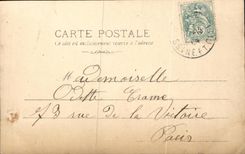 CARTE POSTALE
Ce côté est exclusivement réservé à l'adresse
SEINE ET
Mademoiselle
Odette Crame
73 rue de la Victoire
Paris